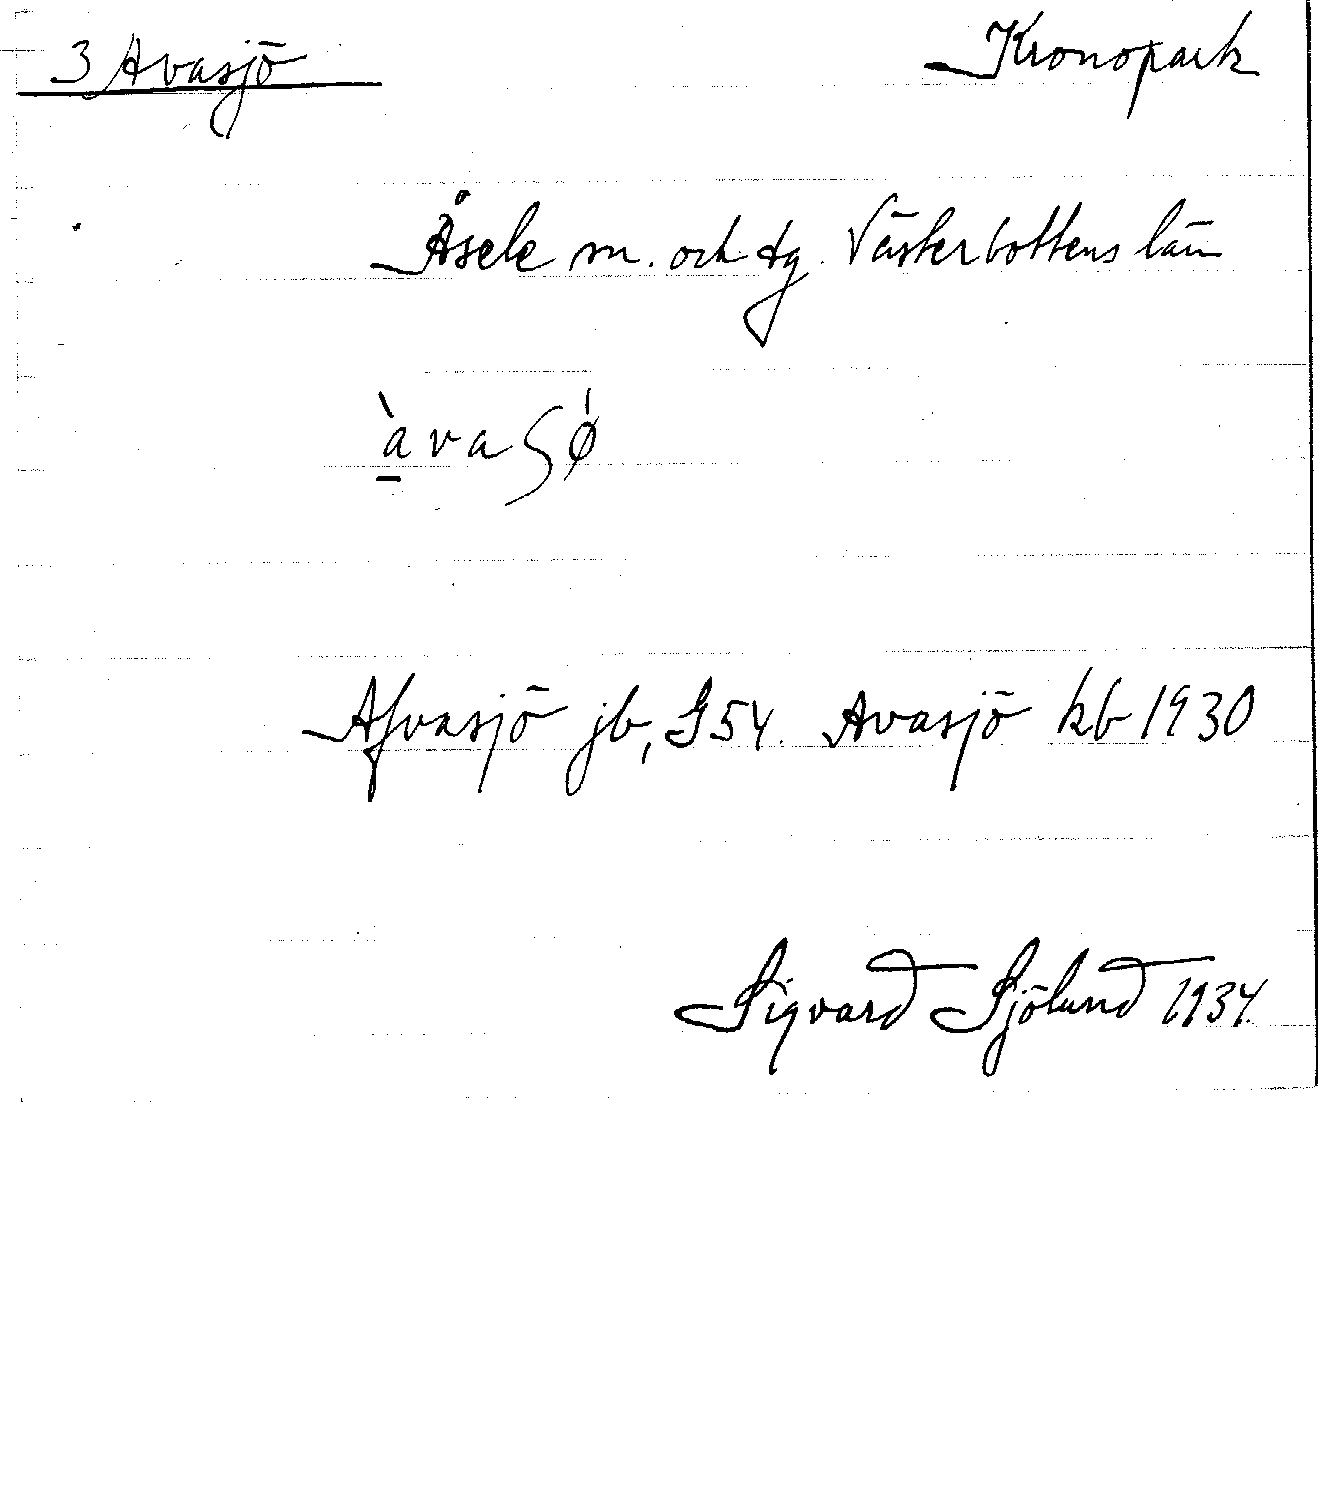 3 Avasjö Kronopark
Åsele sn. och tg. Västerbottens län
àvaʂǿ
Afvasjö jb, G54. Avasjö kb 1930
Sigvard Sjölund 1934.